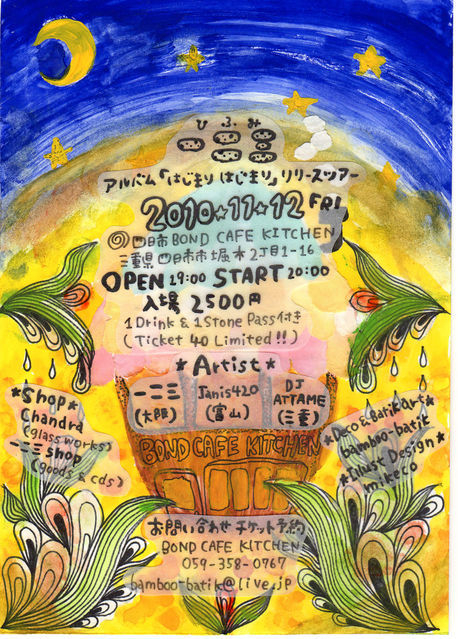 ひふみ
一二三
アルバム「はじまり はじまり」リリースツアー
2010☆11☆12 FRI
@四日市 BOND CAFE KITCHEN
三重県 四日市市 堀木2丁目1-16
OPEN 19:00 START 20:00
入場 2500円
1 Drink & 1 Stone Pass付き
(Ticket 40 Limited!!)
★Artist★
一二三
(大阪)
Janis420
(富山)
DJ
ATTAME
(三重)
★Shop★
Chandra
(glass works)
一二三 shop
(goods & cds)
★Deco & Batik art★
bamboo-batik
★Illust Design★
mikeco
BOND CAFE KITCHEN
お問い合わせ チケット予約
BOND CAFE KITCHEN
059-358-0767
bamboo-batik@live.jp